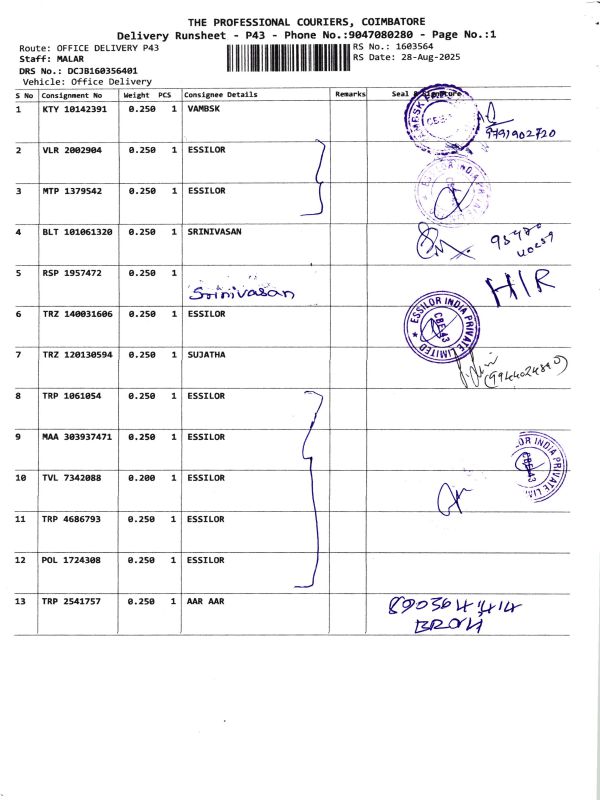 THE PROFESSIONAL COURIERS, COIMBATORE
Delivery Runsheet - P43 - Phone No.:9047080280 - Page No.:1
Route: OFFICE DELIVERY P43 RS No.: 1603564
Staff: MALAR RS Date: 28-Aug-2025
DRS No.: DCJB160356401
Vehicle: Office Delivery
S No Consignment No Weight PCS Consignee Details Remarks Seal & Signature
1 KTY 10142391 0.250 1 VAMBSK
9791902720
2 VLR 2002904 0.250 1 ESSILOR
3 MTP 1379542 0.250 1 ESSILOR
4 BLT 101061320 0.250 1 SRINIVASAN
5 RSP 1957472 0.250 1 Srinivasan H/R
6 TRZ 140031606 0.250 1 ESSILOR
ESSILOR INDIA PRIVATE LIMITED
CBE-43
7 TRZ 120130594 0.250 1 SUJATHA
8 TRP 1061054 0.250 1 ESSILOR
9 MAA 303937471 0.250 1 ESSILOR
10 TVL 7342088 0.200 1 ESSILOR
11 TRP 4686793 0.250 1 ESSILOR
12 POL 1724308 0.250 1 ESSILOR
13 TRP 2541757 0.250 1 AAR AAR